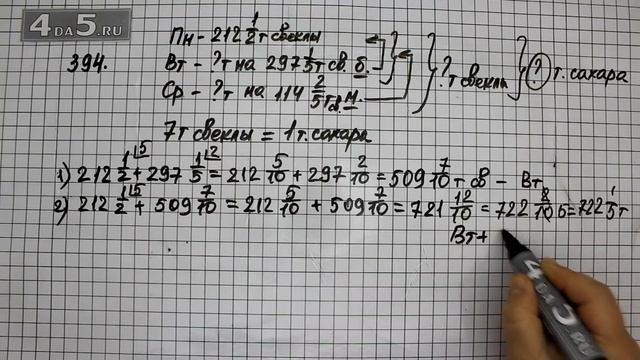 4DA5.RU
394.
Пн - 212 1/2 т свеклы
Вт - ? т на 297 1/5 т св. б.
Ср - ? т на 114 2/5 т св. м.
? т свеклы
? т. сахара
7 т свеклы = 1 т. сахара
1) 212 1/2 + 297 1/5 = 212 5/10 + 297 2/10 = 509 7/10 т св - Вт
2) 212 1/2 + 509 7/10 = 212 5/10 + 509 7/10 = 721 12/10 = 722 2/10 = 722 1/5 т
Вт +
4DA5.RU